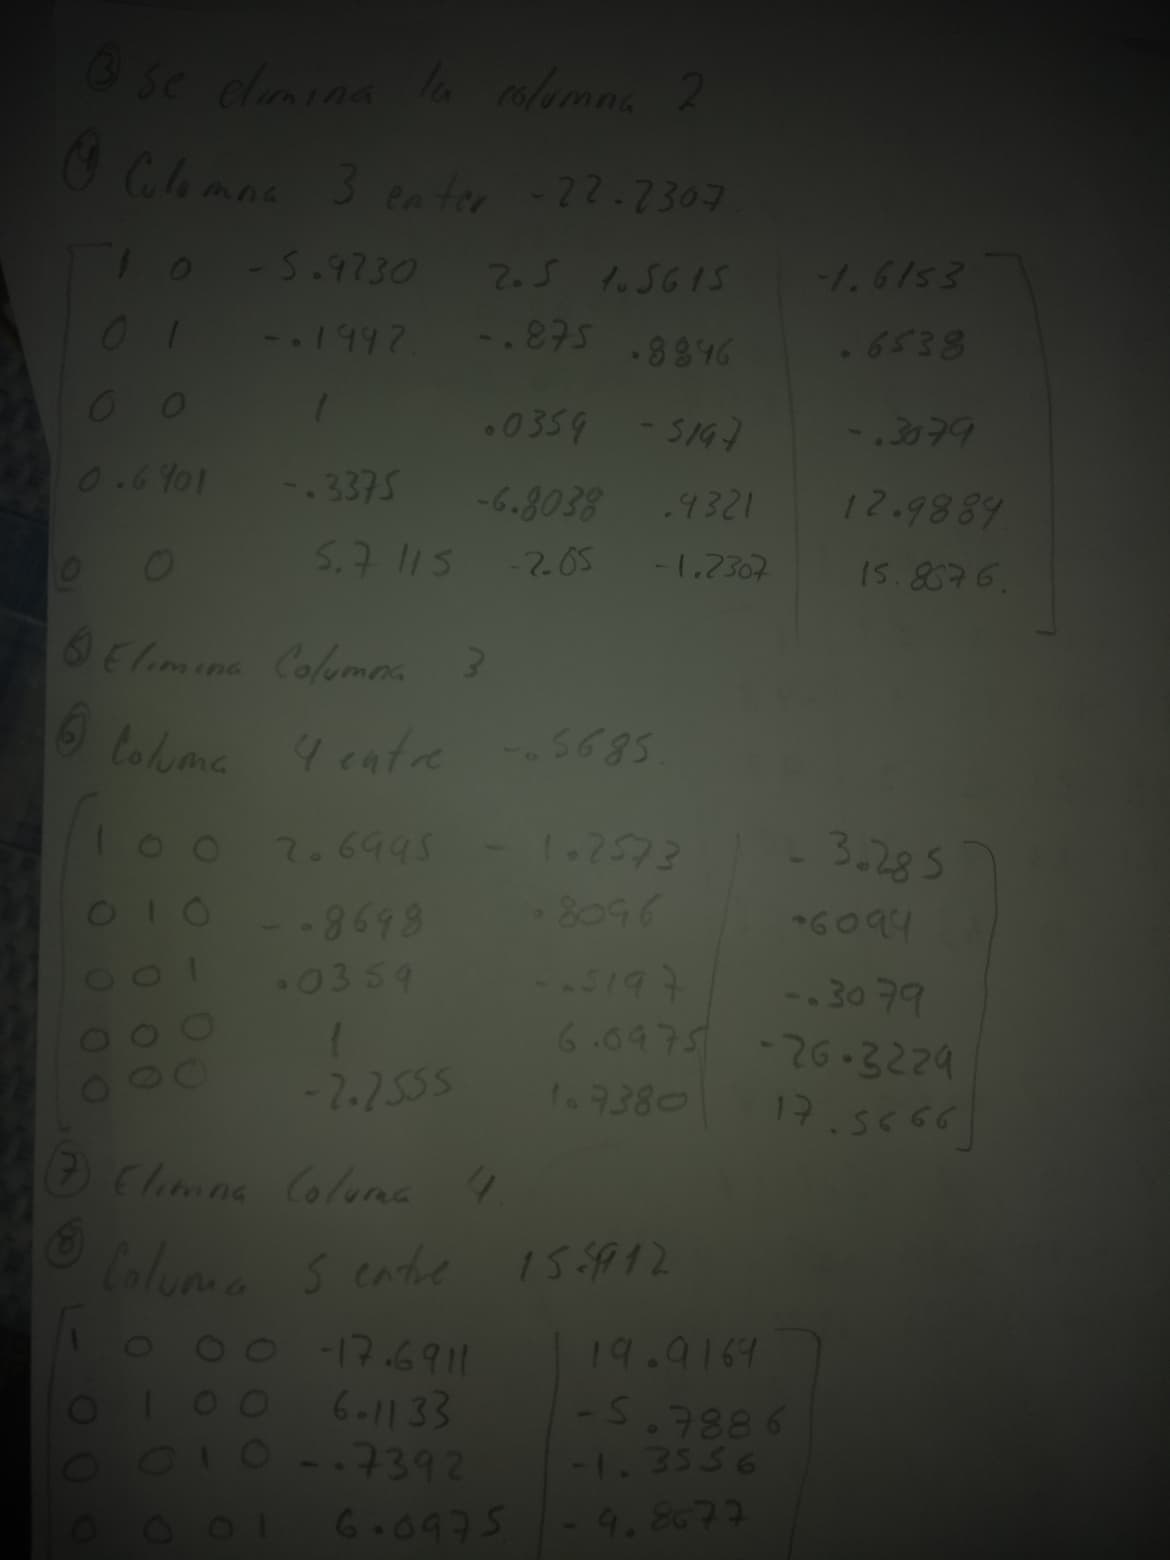 ③ Se elimina la columna 2
④ Columna 3 enter -22.2307
1 0 -5.9230 2.5 1.5615 -1.6153
0 1 -.1942 -.875 .8846 .6538
0 0 1 .0359 -5197 -.3079
0 .6401 -.3375 -6.8038 .4321 12.9884
0 0 5.7115 -2.05 -1.2307 15.8076.
⑤ Elimina Columna 3
⑥ Coluna 4 entre -.5685.
1 0 0 2.6995 - 1.2573 - 3.285
0 1 0 -.8698 .8096 .6094
0 0 1 .0359 -.5197 -.3079
0 0 0 1 6.0975 -26.3229
0 0 0 -2.2555 1.7380 17.5666
⑦ Elimina Coluna 4
⑧ Coluna 5 entre
1 0 0 0 -17.6911 19.9164
0 1 0 0 6.1133 -5.7886
0 0 1 0 -.7392 -1.3556
0 0 0 1 6.0975 -9.8677